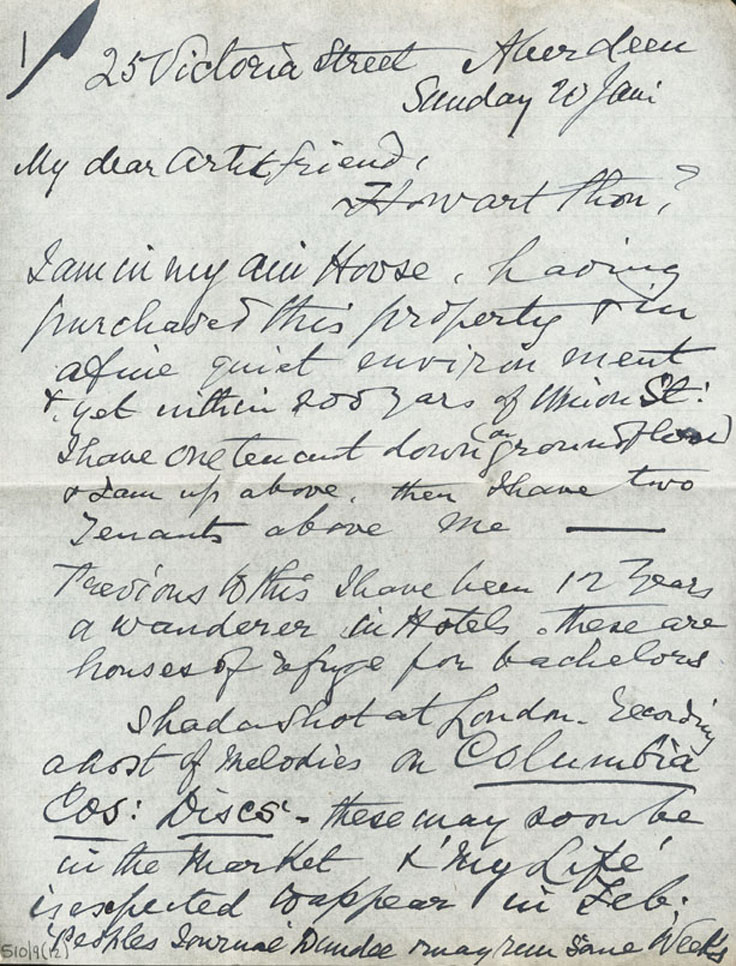 1
25 Victoria Street Aberdeen
Sunday 20 Jan:
My dear Artist friend,
Howart Thon?
I am in my ain Hoose, having
purchased this property & in
a fine quiet environment
& yet within 200 yars of Union St:
I have one tenant down (on ground floor)
& I am up above, then I have two
Tenants above me —
Previous to this I have been 12 years
a wanderer in Hotels. these are
houses of refuge for bachelors
I had a shot at London - Recording
a host of melodies on Columbia
Cos: Discs - these may soon be
in the Market & 'My Life'
is expected to appear in Feb:
'Peoples Journal' Dundee & may run some Weeks
510/9(12)